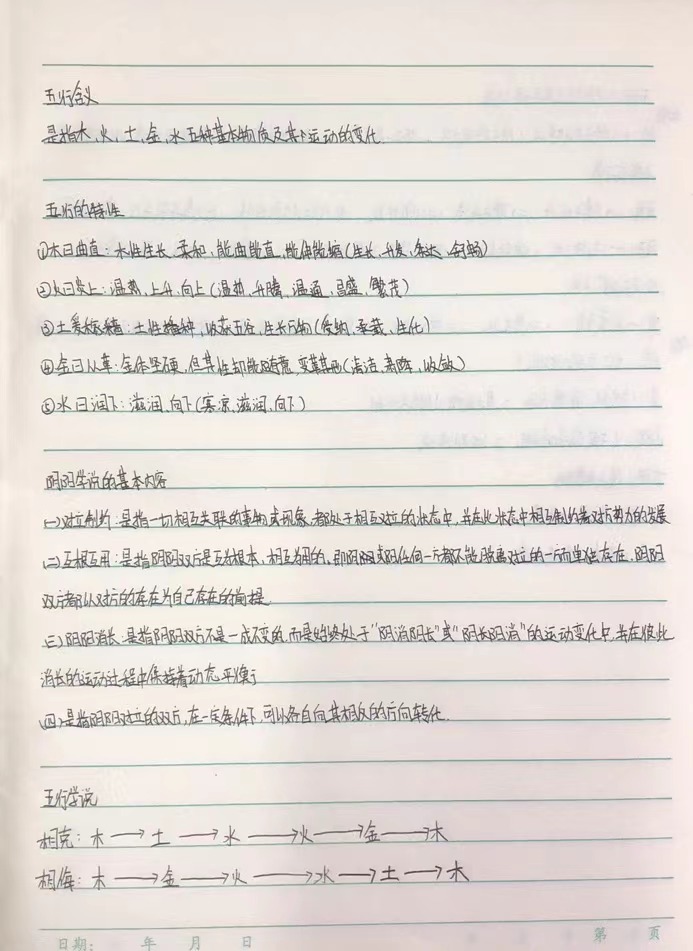 五行含义
是指木,火,土,金,水五种基本物质及其运动的变化.
五行的特性
①木曰曲直:木性生长,柔和,能曲能直,能伸能缩(生长,升发,条达,舒畅)
②火曰炎上:温热,上升,向上(温热,升腾,温通,昌盛,繁茂)
③土爰稼穑:土性播种,收获五谷,生长万物(受纳,承载,生化)
④金曰从革:金体坚硬,但其性却能随意,变革其他(清洁,肃降,收敛)
⑤水曰润下:滋润,向下(寒凉,滋润,向下)
阴阳学说的基本内容
(一)对立制约:是指一切相互关联的事物或现象,都处于相互对立的状态中,并在此状态中相互制约着对方势力的发展
(二)互根互用:是指阴阳双方是互为根本,相互为用的,即阴或阳任何一方都不能脱离对立的一方而单独存在,阴阳
双方都以对方的存在为自己存在的前提.
(三)阴阳消长:是指阴阳双方不是一成不变的,而是始终处于“阴消阳长”或“阴长阳消”的运动变化中,并在彼此
消长的运动过程中保持着动态平衡
(四)是指阴阳对立的双方,在一定条件下,可以各自向其相反的方向转化.
五行学说
相克:木→土→水→火→金→木
相侮:木→金→火→水→土→木
日期: 年 月 日 第 页